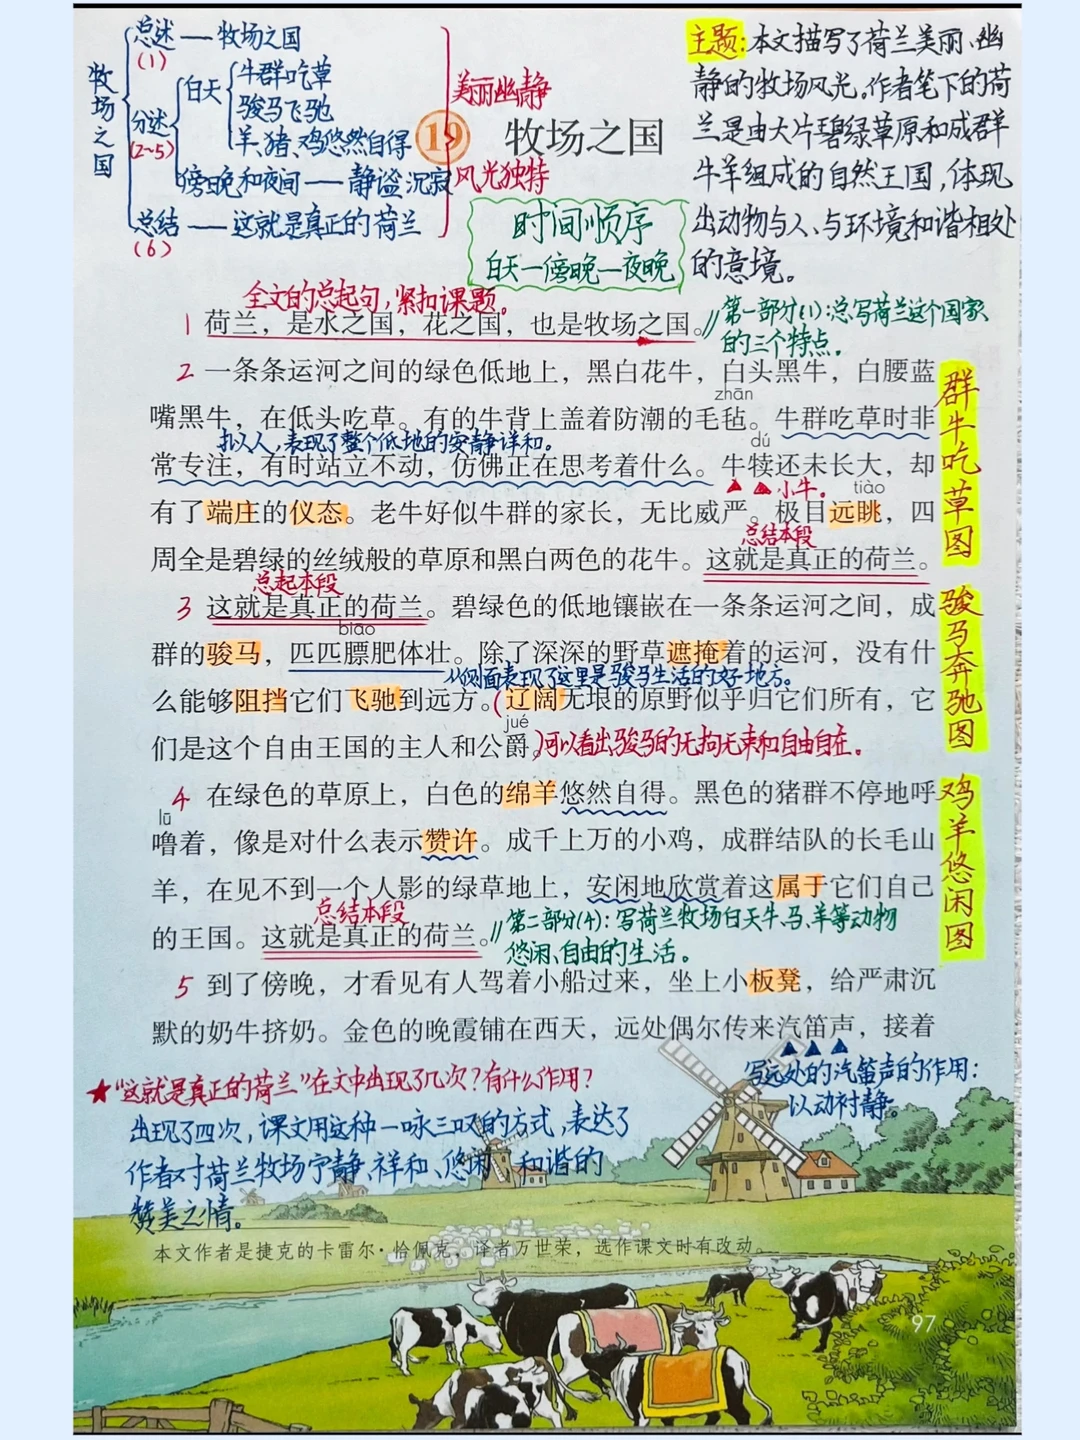 牧场之国
总述——牧场之国
(1)
分述
(2~5)
白天
牛群吃草
骏马飞驰
羊、猪、鸡悠然自得
傍晚和夜间——静谧沉寂
总结——这就是真正的荷兰
(6)
美丽幽静
风光独特
19 牧场之国
时间顺序
白天—傍晚—夜晚
主题:本文描写了荷兰美丽、幽
静的牧场风光。作者笔下的荷
兰是由大片碧绿草原和成群
牛羊组成的自然王国,体现
出动物与人、与环境和谐相处
的意境。
全文的总起句,紧扣课题。
1 荷兰，是水之国，花之国，也是牧场之国。
//第一部分(1):总写荷兰这个国家
的三个特点。
2 一条条运河之间的绿色低地上，黑白花牛，白头黑牛，白腰蓝
zhān
嘴黑牛，在低头吃草。有的牛背上盖着防潮的毛毡。牛群吃草时非
拟人,表现了整个低地的安静详和。
dú
常专注，有时站立不动，仿佛正在思考着什么。牛犊还未长大，却
小牛。
tiào
有了端庄的仪态。老牛好似牛群的家长，无比威严。极目远眺，四
总结本段
周全是碧绿的丝绒般的草原和黑白两色的花牛。这就是真正的荷兰。
群牛吃草图
总起本段
3 这就是真正的荷兰。碧绿色的低地镶嵌在一条条运河之间，成
biāo
群的骏马，匹匹膘肥体壮。除了深深的野草遮掩着的运河，没有什
侧面表现了这里是骏马生活的好地方。
么能够阻挡它们飞驰到远方。(辽阔无垠的原野似乎归它们所有，它
jué
们是这个自由王国的主人和公爵。)可以看出骏马的无拘无束和自由自在。
骏马奔驰图
4 在绿色的草原上，白色的绵羊悠然自得。黑色的猪群不停地呼
lū
噜着，像是对什么表示赞许。成千上万的小鸡，成群结队的长毛山
羊，在见不到一个人影的绿草地上，安闲地欣赏着这属于它们自己
总结本段
的王国。这就是真正的荷兰。
//第二部分(4):写荷兰牧场白天牛、马、羊等动物
悠闲、自由的生活。
鸡羊悠闲图
5 到了傍晚，才看见有人驾着小船过来，坐上小板凳，给严肃沉
默的奶牛挤奶。金色的晚霞铺在西天，远处偶尔传来汽笛声，接着
写远处的汽笛声的作用:
以动衬静。
★“这就是真正的荷兰”在文中出现了几次?有什么作用?
出现了四次,课文用这种一咏三叹的方式,表达了
作者对荷兰牧场宁静、祥和、悠闲、和谐的
赞美之情。
本文作者是捷克的卡雷尔·恰佩克，译者万世荣，选作课文时有改动。
97